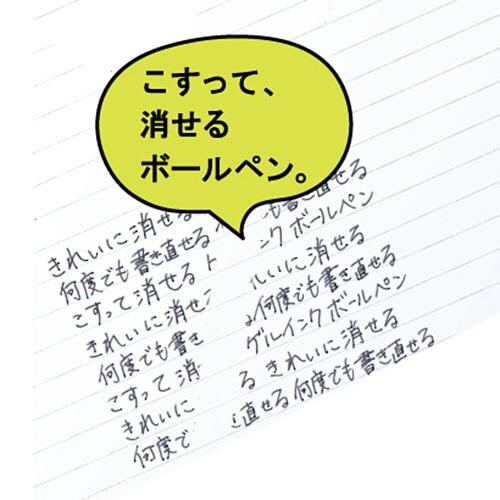 こすって、
消せる
ボールペン。
も書き直せる
きれいに消せる
ンク ボールペン
何度でも書き直せる
いに消せる
こすって消せる
何度でも書き直せる
きれいに消せ
ゲルインクボールペン
何度でも書き
る きれいに消せる
こすって消
直せる 何度でも書き直せる
きれいに
何度で